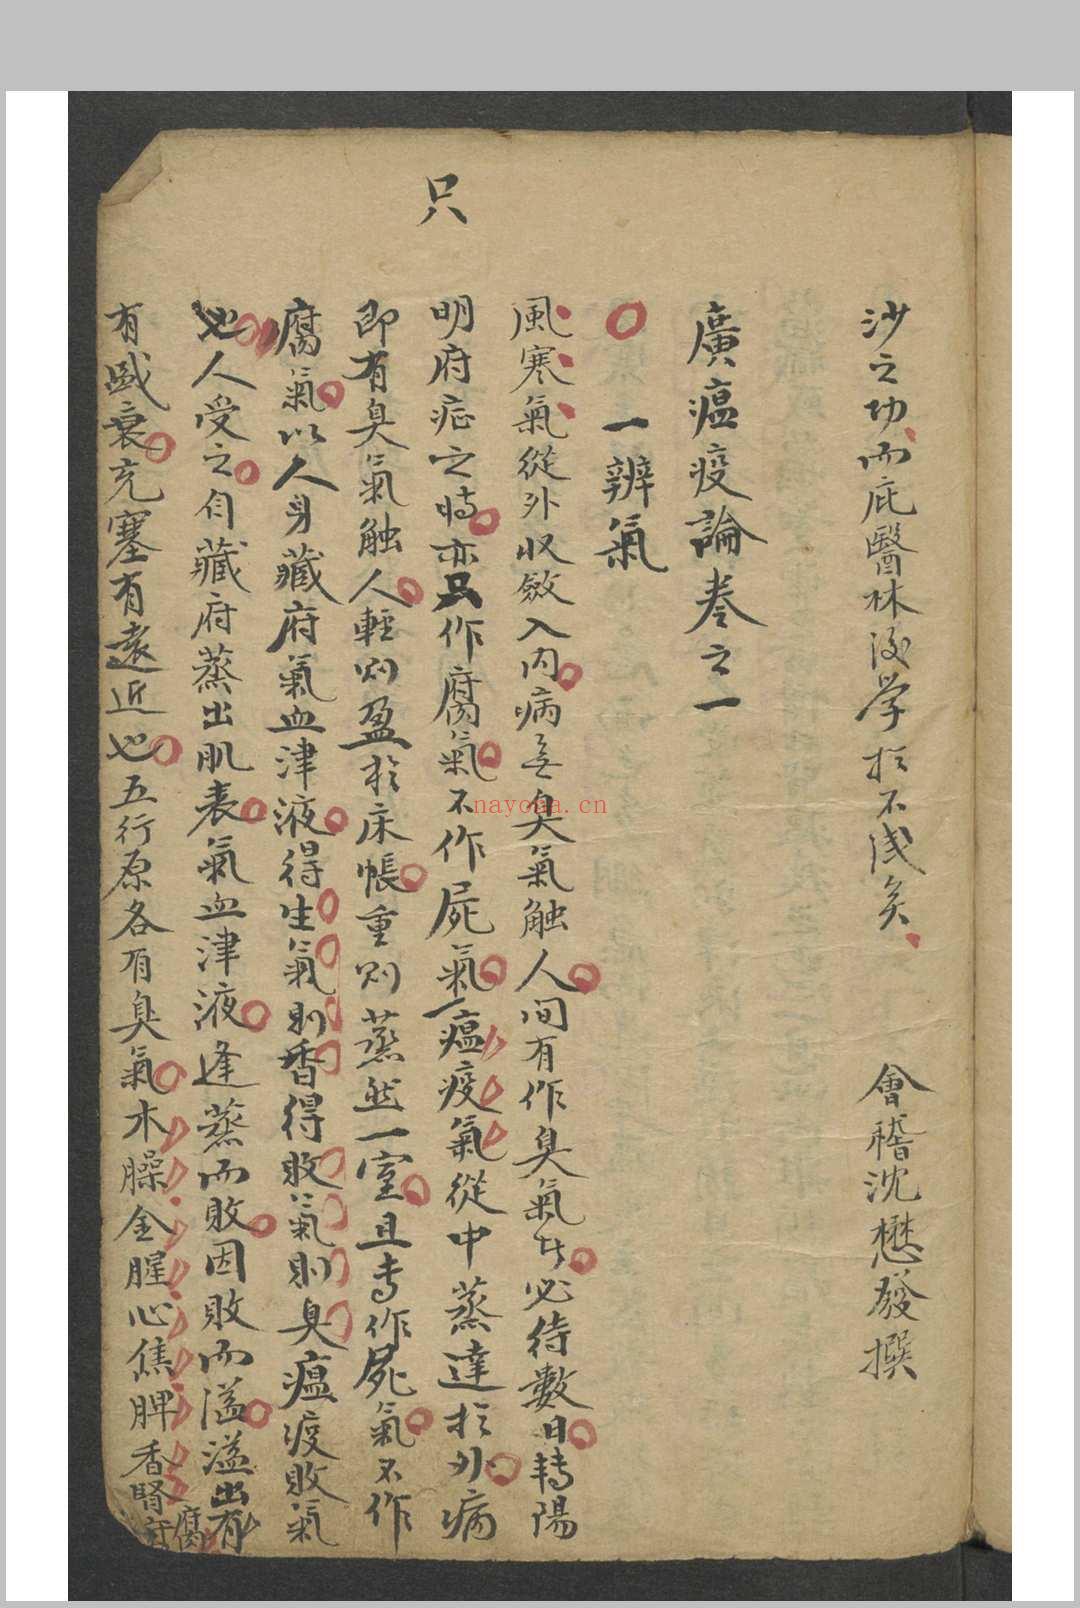 沙之功而庇醫林後学於不浅矣 會稽沈懋發撰
廣瘟疫論卷之一
一辨氣
風寒氣從外收斂入內病無臭氣触人间有作臭氣者必待數日轉陽
明府症之時亦只作腐氣不作屍氣瘟疫氣從中蒸達於外病
即有臭氣触人輕则盈於床帳重则蒸然一室且专作屍氣不作
腐氣以人身藏府氣血津液得生氣則香得敗氣則臭瘟疫敗氣
也人受之自藏府蒸出肌表氣血津液逢蒸而敗因敗而溢溢出有
有盛衰充塞有遠近也五行原各有臭氣木臊金腥心焦脾香腎腐
只
nayona.cn